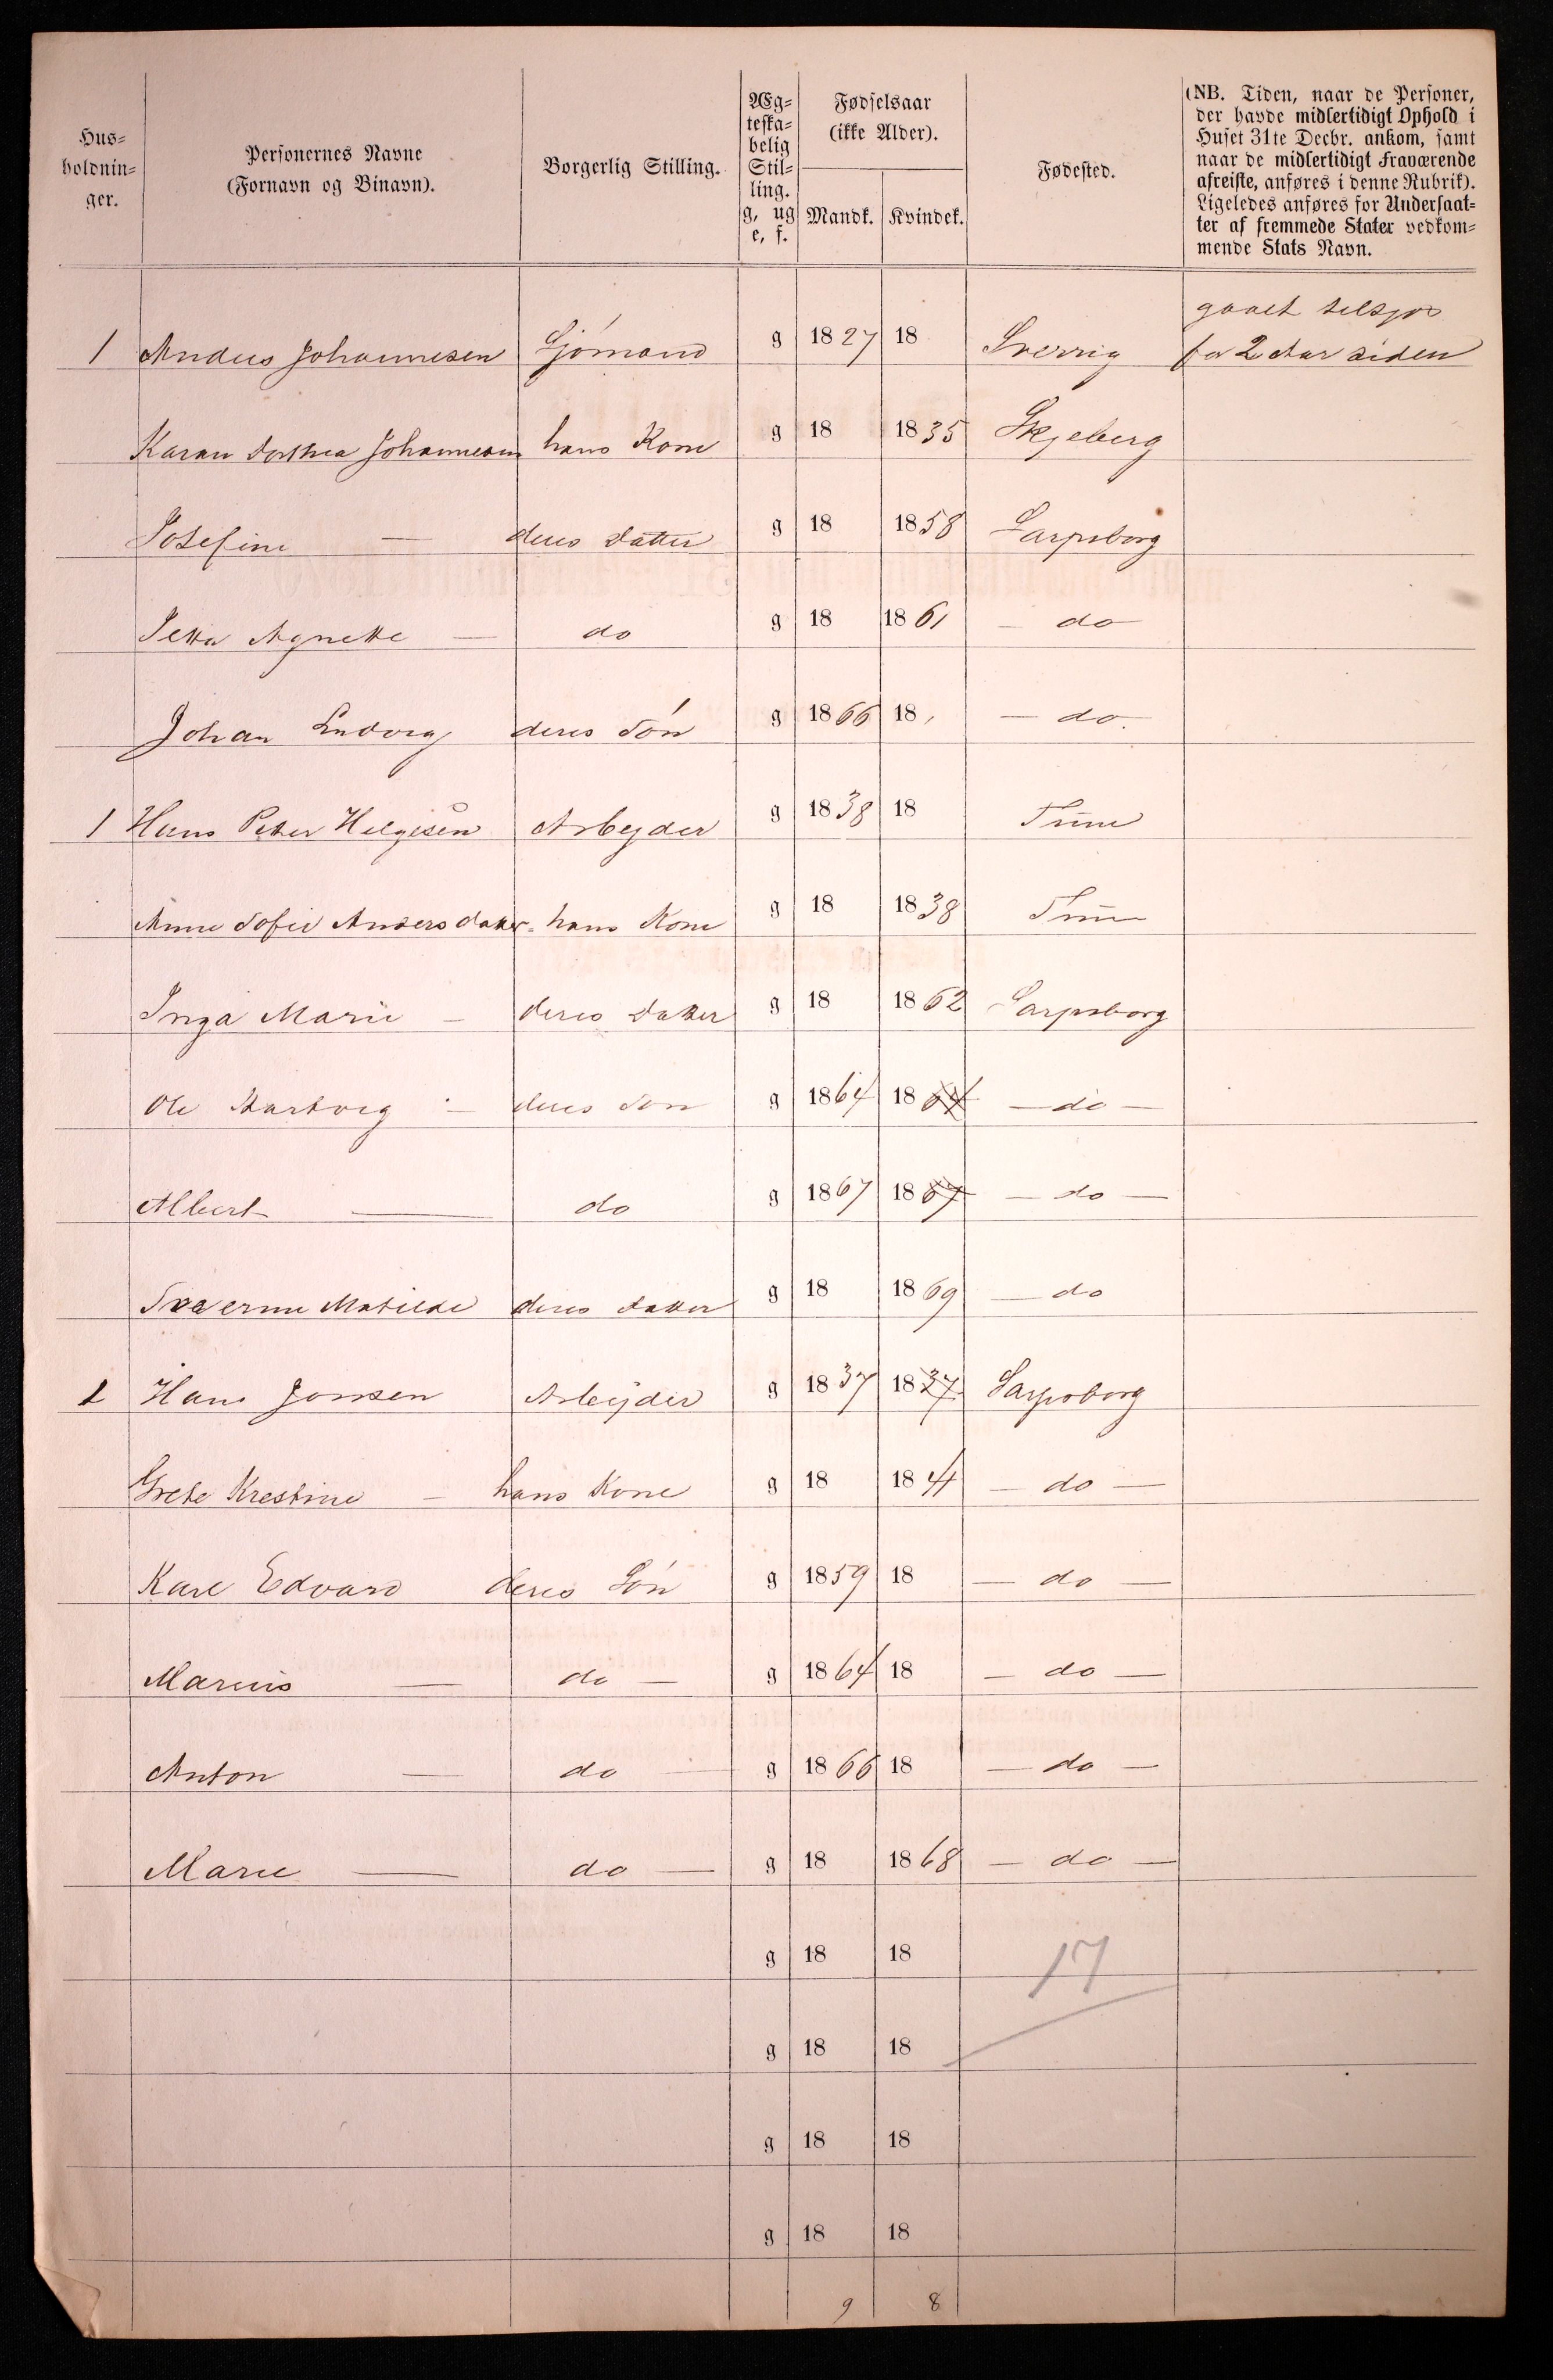 Hus-
holdnin-
ger.
Personernes Navne
(Fornavn og Binavn).
Borgerlig Stilling.
Æg-
teska-
belig
Stil-
ling.
g, ug
e, f.
Fødselsaar
(ikke Alder).
Mandk. Kvindek.
Fødested.
(NB. Tiden, naar de Personer,
der havde midlertidigt Ophold i
Huset 31te Decbr. ankom, samt
naar de midlertidigt Fraværende
afreiste, anføres i denne Rubrik).
Ligeledes anføres for Undersaat-
ter af fremmede Stater vedkom-
mende Stats Navn.
gaaet tilsjøs
1 Anders Johannesen Sjömand g 1827 18 Sverrig for 2 Aar siden
Karen Dorthea Johannesen hans Kone g 18 1835 Skjeberg
Josefine — deres Datter g 18 1858 Sarpsborg
Agnette — do g 18 1861 — do —
Johan Ludvig deres Sön g 1866 18 — do.
1 Hans Peter Helgesen Arbeyder g 1838 18 Tune
Anne Sofie Andersdatter hans Kone g 18 1838 Tune
Inga Marie — deres Datter g 18 1862 Sarpsborg
Ole Hartvig — deres Son g 1864 1864 — do —
Albert — do g 1867 1867 — do —
Matilde deres Datter g 18 1869 — do
1 Hans Jonsen Arbeyder g 1837 1837 Sarpsborg
Grete Krestine — hans Kone g 18 18 — do —
Karl Edvard deres Sön g 1859 18 — do —
Marius — do — g 1864 18 — do —
Anton — do — g 1866 18 — do —
Marie — do — g 18 1868 — do —
g 18 18 17
g 18 18
g 18 18
g 18 18
9 8